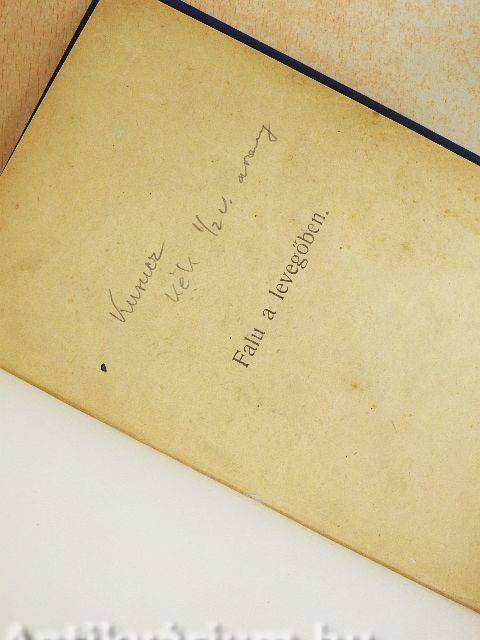 Kuncz
kék 1/2 v. arany
Falu a levegőben.
Antikvárium.hu